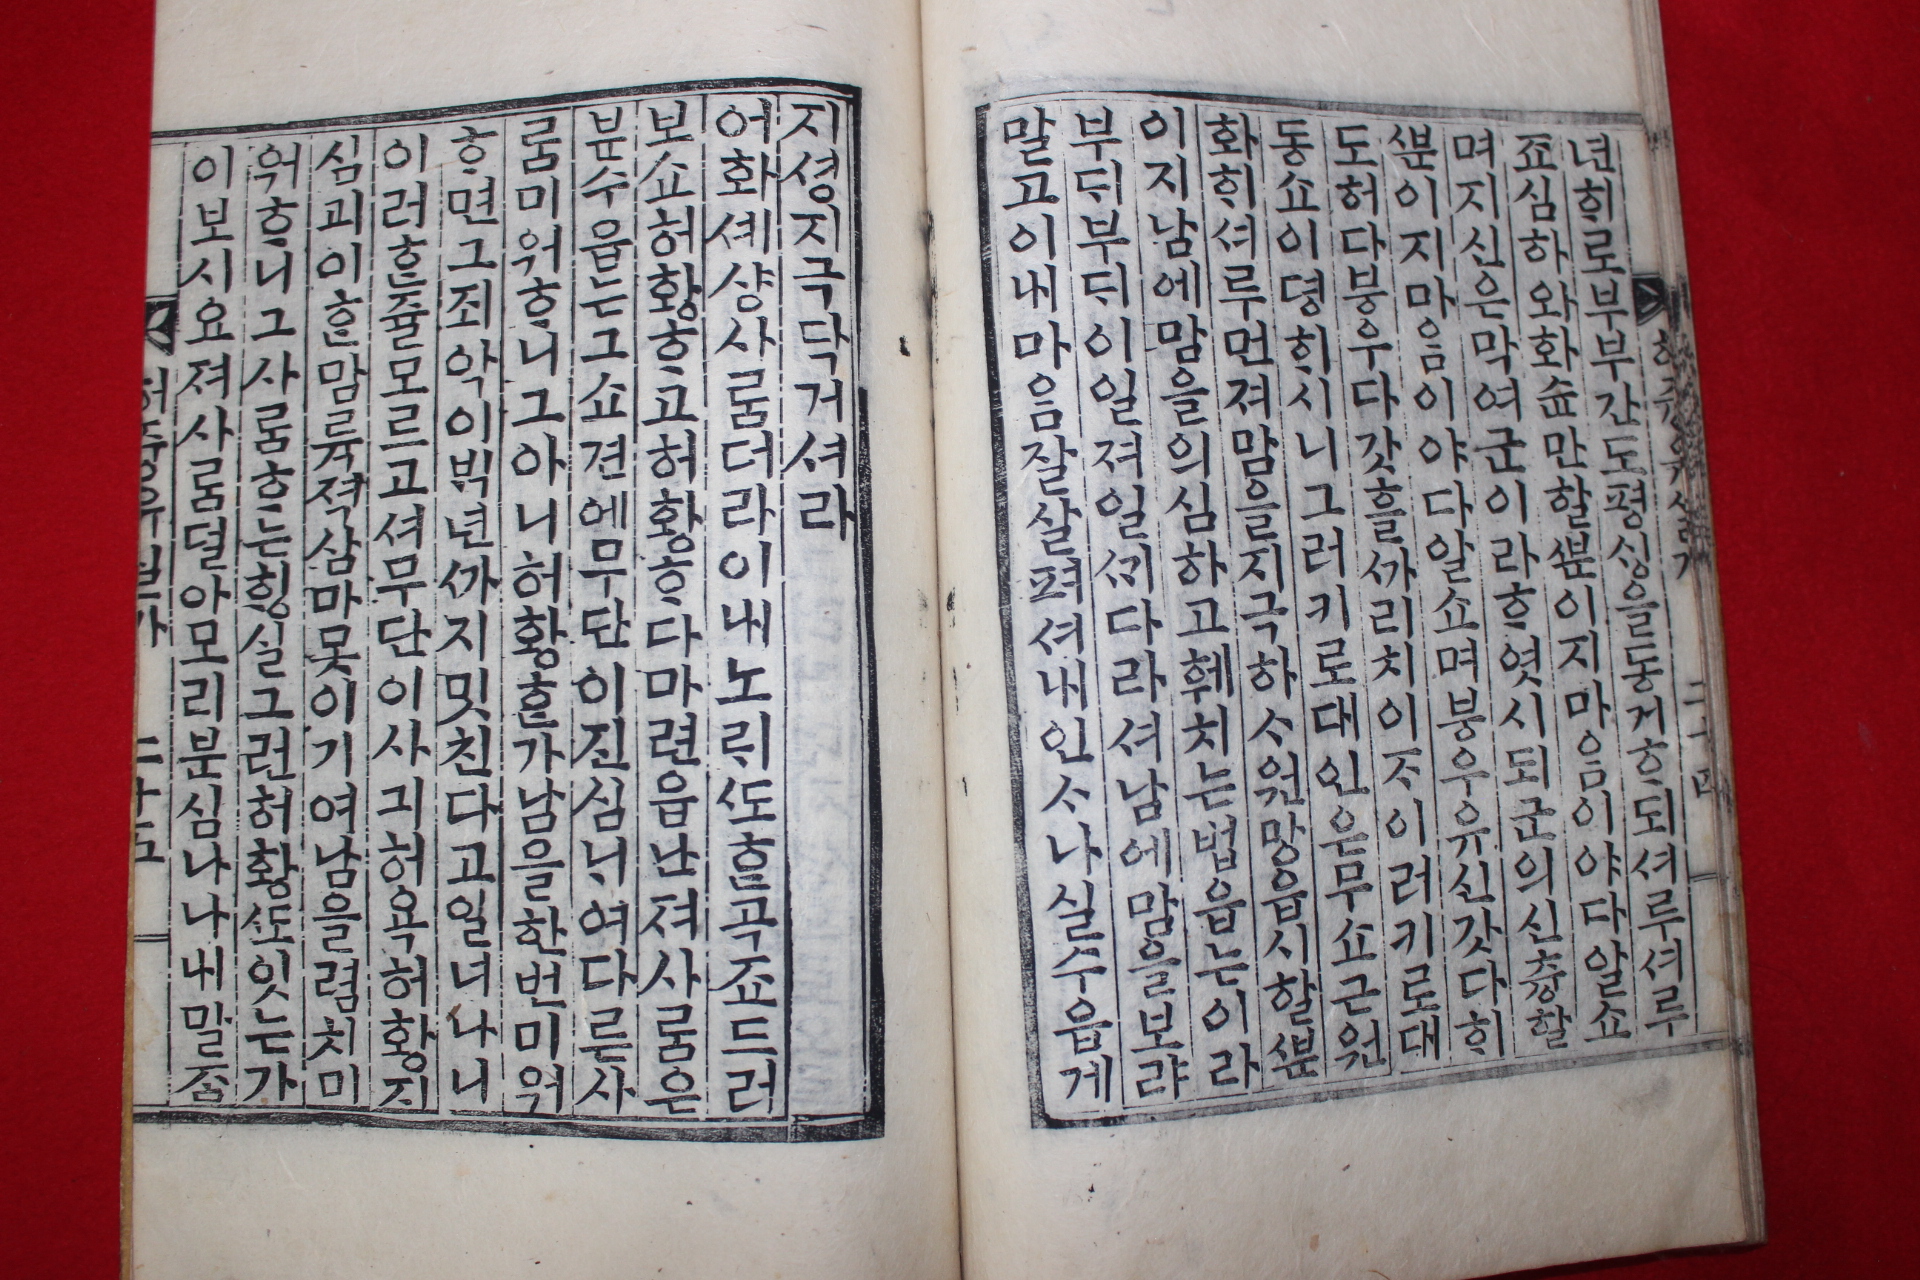 년ᄒᆡ로부부간도평싱을동거ᄒᆞ되셔루셔루
죠심하와화슌만할ᄲᅮᆫ이지마음이야다알쇼
며지신은막여군이라ᄒᆞ엿시되군의신츙할
ᄲᅮᆫ이지마음이야다알쇼며붕우유신갓다ᄒᆡ
도허다붕우다갓흘ᄭᅡ리치이ᄌᆞ이러키로대
동쇼이뎡ᄒᆡ시니그러키로대인은무쇼근원
화ᄒᆡ셔루먼져맘을지극하ᄉᆞ원망읍시할ᄲᅮᆫ
이지남에맘을의심하고훼치는법읍는이라
부ᄃᆡ부ᄃᆡ이일져일ᄭᅵ다라셔남에맘을보랴
말고이내마음잘살펴셔내인ᄉᆞ나실수읍게
지셩지극닥거셔라
어화셰샹사룸더라이내노ᄅᆡᄯᅩᄒᆞᆫ곡죠드러
보쇼허황ᄒᆞ고허황ᄒᆞ다마련읍난져사룸은
분수읍는그쇼견에무단이진심ᄂᆡ여다른사
룸미워ᄒᆞ니그아니허황ᄒᆞᆫ가남을한번미워
ᄒᆞ면그죄악이ᄇᆡᆨ년ᄭᅡ지밋친다고일너나니
이러ᄒᆞᆫ줄모르고셔무단이사긔허욕허황지
심괴이ᄒᆞᆫ맘륙젹삼마못이기여남을렴치미
워ᄒᆞ니그사룸ᄒᆞ는ᄒᆡᆼ실그런허황ᄯᅩ잇는가
이보시요져사룸덜아모리분심나나내말죰